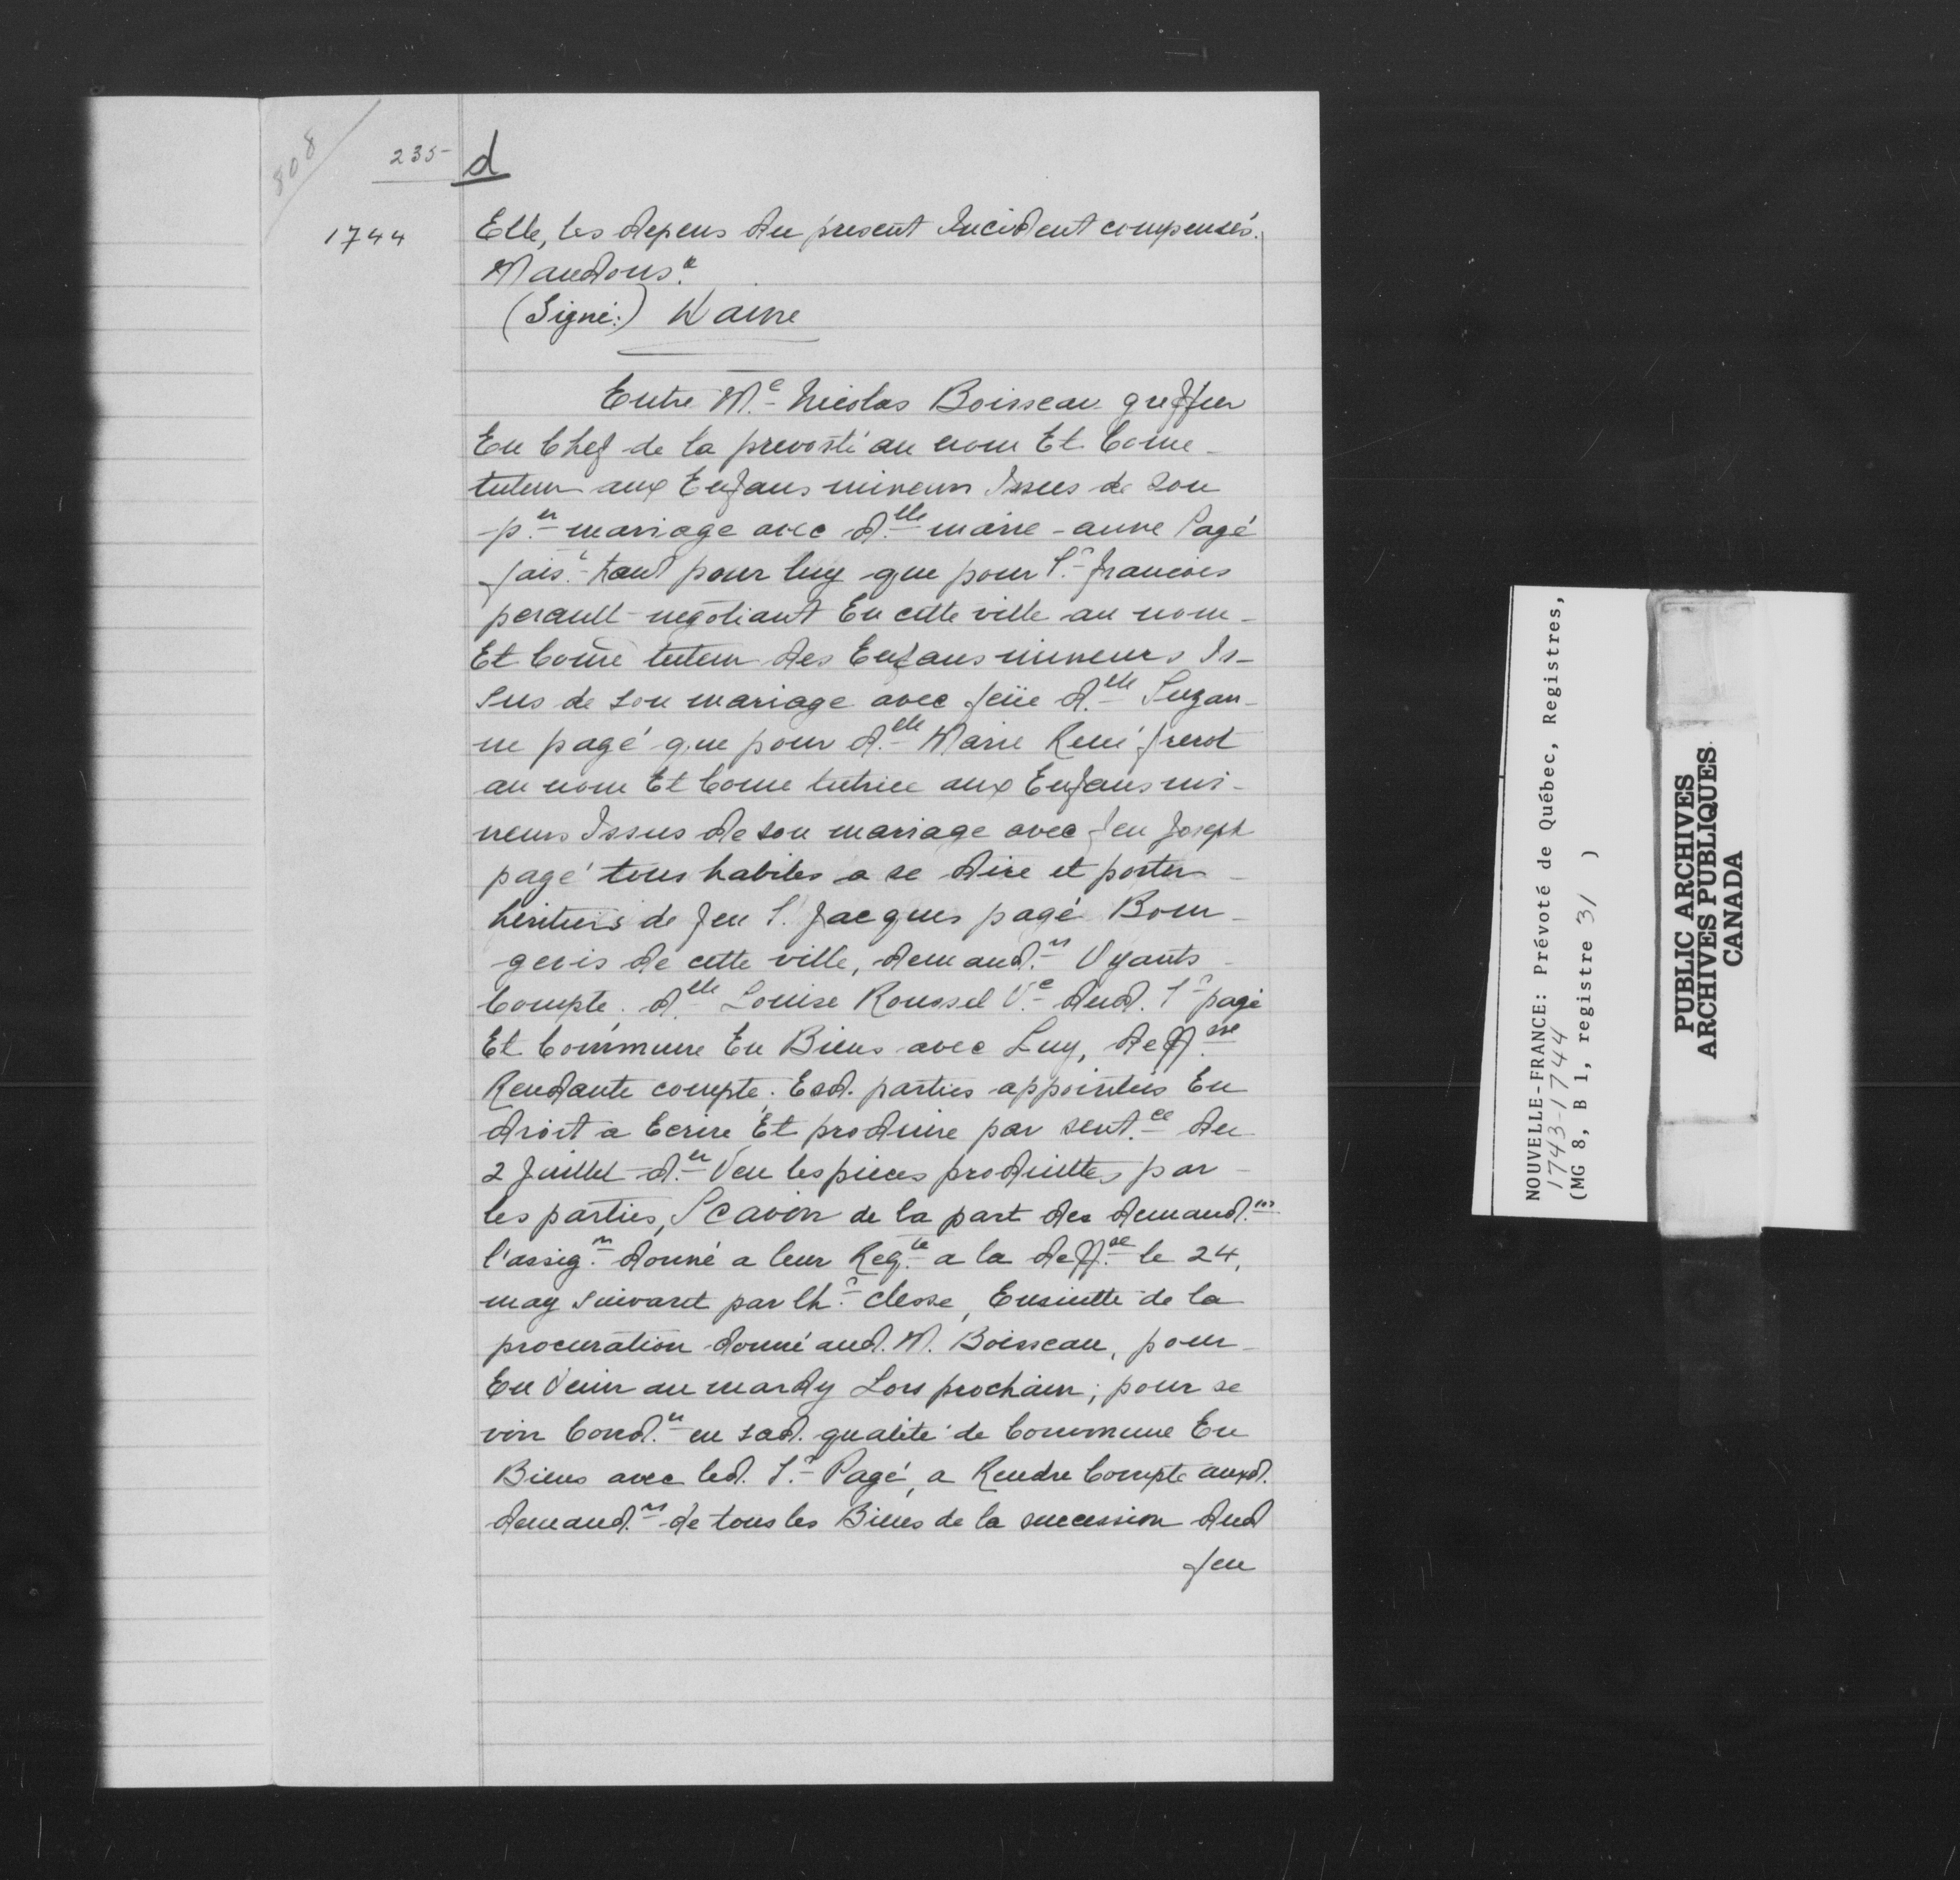 808
235-
d
1744
Elle, les depens du present Incident compensés.
Mandons.&
(Signé:) Daine
Entre M.e Nicolas Boisseau greffier
En Chef de la prevosté au nom Et Come
tuteur aux Enfans mineurs Issus de son
p.er mariage avec d.elle marie-anne Pagé
fais.t tant pour luy que pour S.r francois
perault negotiant En cette ville au nom
Et Come tuteur des Enfans mineurs Is-
sus de son mariage avec feüe d.elle Suzan-
ne pagé que pour d.elle Marie René frerot
au nom Et Come tutrice aux Enfans mi-
neurs Issus de son mariage avec feu Joseph
pagé tous habiles a se dire et porter
heritiers de feu S. Jacques pagé Bour-
geois de cette ville, demand.rs Oyants
Compte. d.elle Louise Roussel V.e dud. S.r pagé
Et Commune En Biens avec Luy, deff.sse
Rendante compte. Esd. parties appointées En
droit a Ecrire Et produire par sent.ce du
2 Juillet d.er Veu les pieces produittes par
les parties, Scavoir de la part des demand.rs
l'assig.n donné a leur Req.te a la deff.se le 24,
may suivant par Ch.r clesse, Ensuitte de la
procuration donné aud. M. Boisseau, pour
En Venir au mardy Lors prochain; pour se
voir Cond.er en sad. qualité de Commune En
Biens avec led. S.r Pagé, a Rendre Compte auxd.
demand.rs de tous les Biens de la succession dud
feu
NOUVELLE-FRANCE: Prévoté de Québec, Registres,
1743-1744
(MG 8, B 1, registre 31 )
PUBLIC ARCHIVES
ARCHIVES PUBLIQUES
CANADA